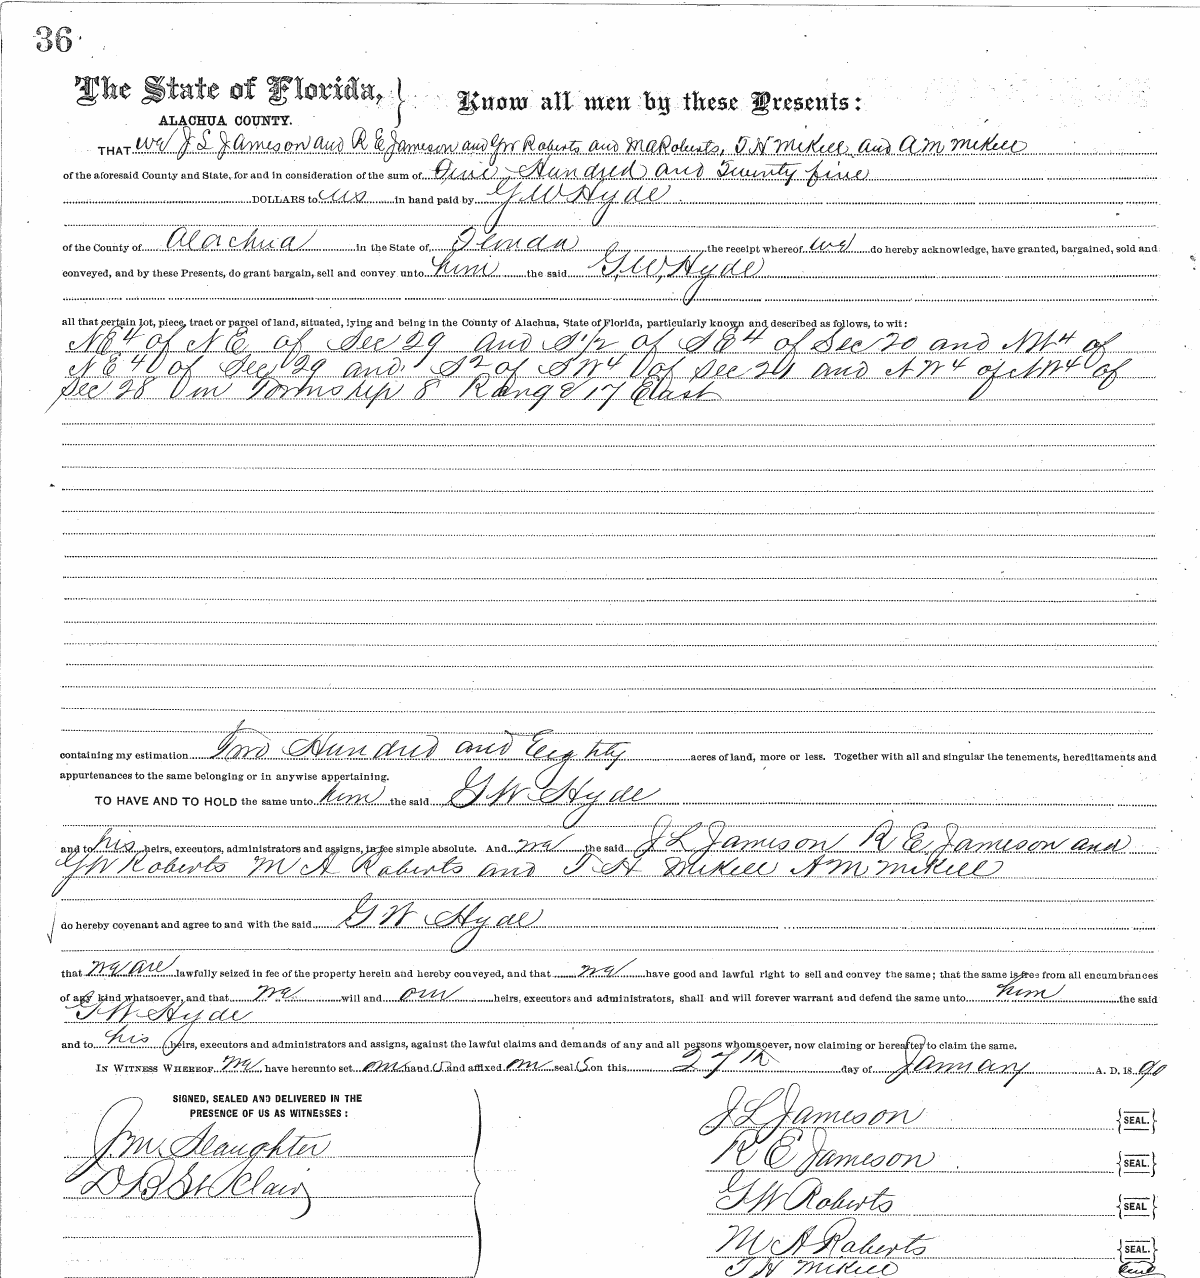 36
The State of Florida,
Know all men by these Presents:
ALACHUA COUNTY.
THAT we J L Jameson and R E Jameson and GW Roberts and MA Roberts, T H Mikell and A M Mikell
of the aforesaid County and State, for and in consideration of the sum of Five Hundred and Twenty five
DOLLARS to us in hand paid by G W Hyde
of the County of Alachua in the State of Florida the receipt whereof we do hereby acknowledge, have granted, bargained, sold and
conveyed, and by these Presents, do grant bargain, sell and convey unto him the said G. W. Hyde
all that certain lot, piece, tract or parcel of land, situated, lying and being in the County of Alachua, State of Florida, particularly known and described as follows, to wit:
NE4 of NE of Sec 29 and S1/2 of SE4 of Sec 20 and NW4 of
NE4 of Sec 29 and S2 of SW4 of Sec 21 and NW4 of NW4 of
Sec 28 in Township 8 Range 17 East
containing my estimation Two Hundred and Eeighty acres of land, more or less. Together with all and singular the tenements, hereditaments and
appurtenances to the same belonging or in anywise appertaining.
TO HAVE AND TO HOLD the same unto him the said G W Hyde
and to his heirs, executors, administrators and assigns, in fee simple absolute. And we the said J L Jameson R E Jameson and
GW Roberts M A Roberts and T H Mikell A M Mikell
do hereby covenant and agree to and with the said G W Hyde
that we are lawfully seized in fee of the property herein and hereby conveyed, and that we have good and lawful right to sell and convey the same; that the same is free from all encumbrances
of any kind whatsoever, and that we will and our heirs, executors and administrators, shall and will forever warrant and defend the same unto him the said
G W Hyde
and to his heirs, executors and administrators and assigns, against the lawful claims and demands of any and all persons whomsoever, now claiming or hereafter to claim the same.
IN WITNESS WHEREOF we have hereunto set our hand s and affixed our seal s on this 27th day of January A. D. 18 90
SIGNED, SEALED AND DELIVERED IN THE
PRESENCE OF US AS WITNESSES:
J L Jameson SEAL.
J. M. Slaughter
R E Jameson SEAL.
D B St Clair
G W Roberts SEAL
M A Roberts SEAL.
T H Mikell Seal